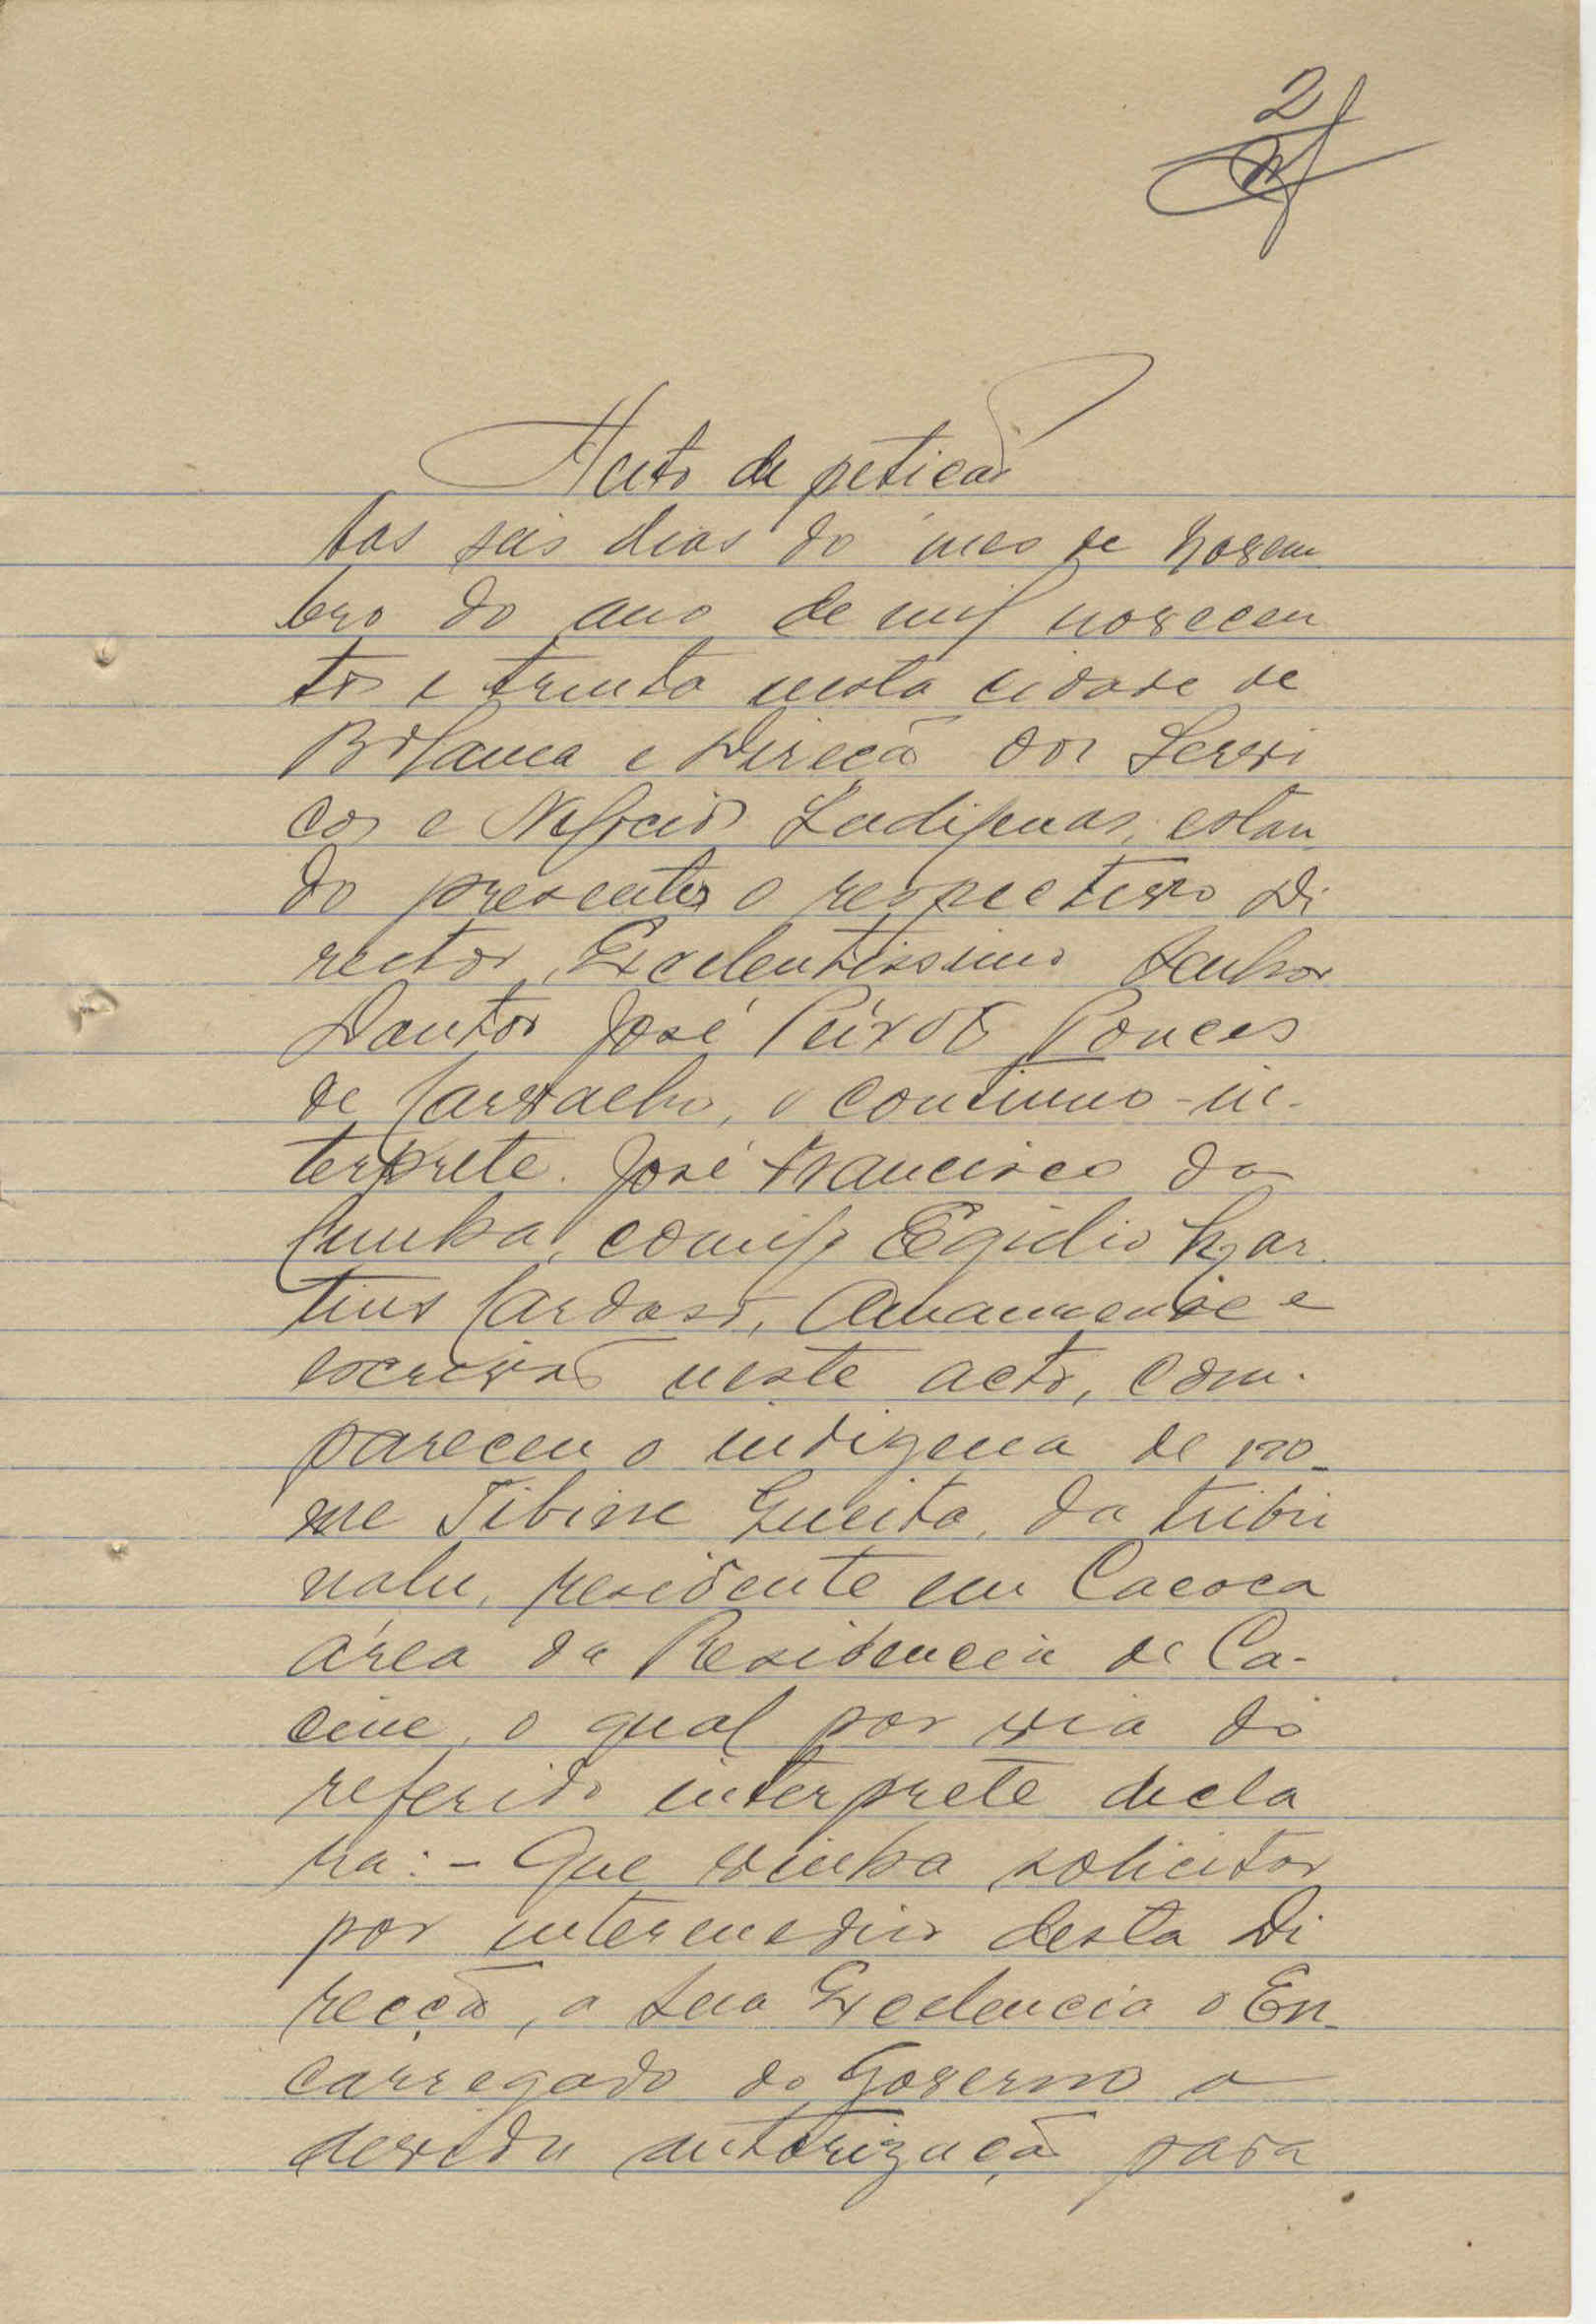 2
Auto de petição
Aos seis dias do mes de Novem
bro do ano de mil novecen
tos e trinta nesta cidade de
Bolama e Direcã dos Servi
cos e Negocios Indigenas, estan
do presentes o respectivo Di
rector, Excelentissimo Senhor
Doutor José Peixoto Ponces
de Carvalho, o continuo-in-
terprete José Francisco da
Cunha, comigo Egidio Mar
tins Cardoso, Amanuense e
escrivão neste acto, com-
pareceu o indigena de no-
me Tibine Gueita, da tribu
nalu, residente em Cacoca
área da Residencia de Ca-
cine, o qual por via do
referido interprete decla
ra: - Que vinha solicitar
por intermedio desta Di
recção, a Sua Excelencia o En-
carregado do Governo a
devida autorização para